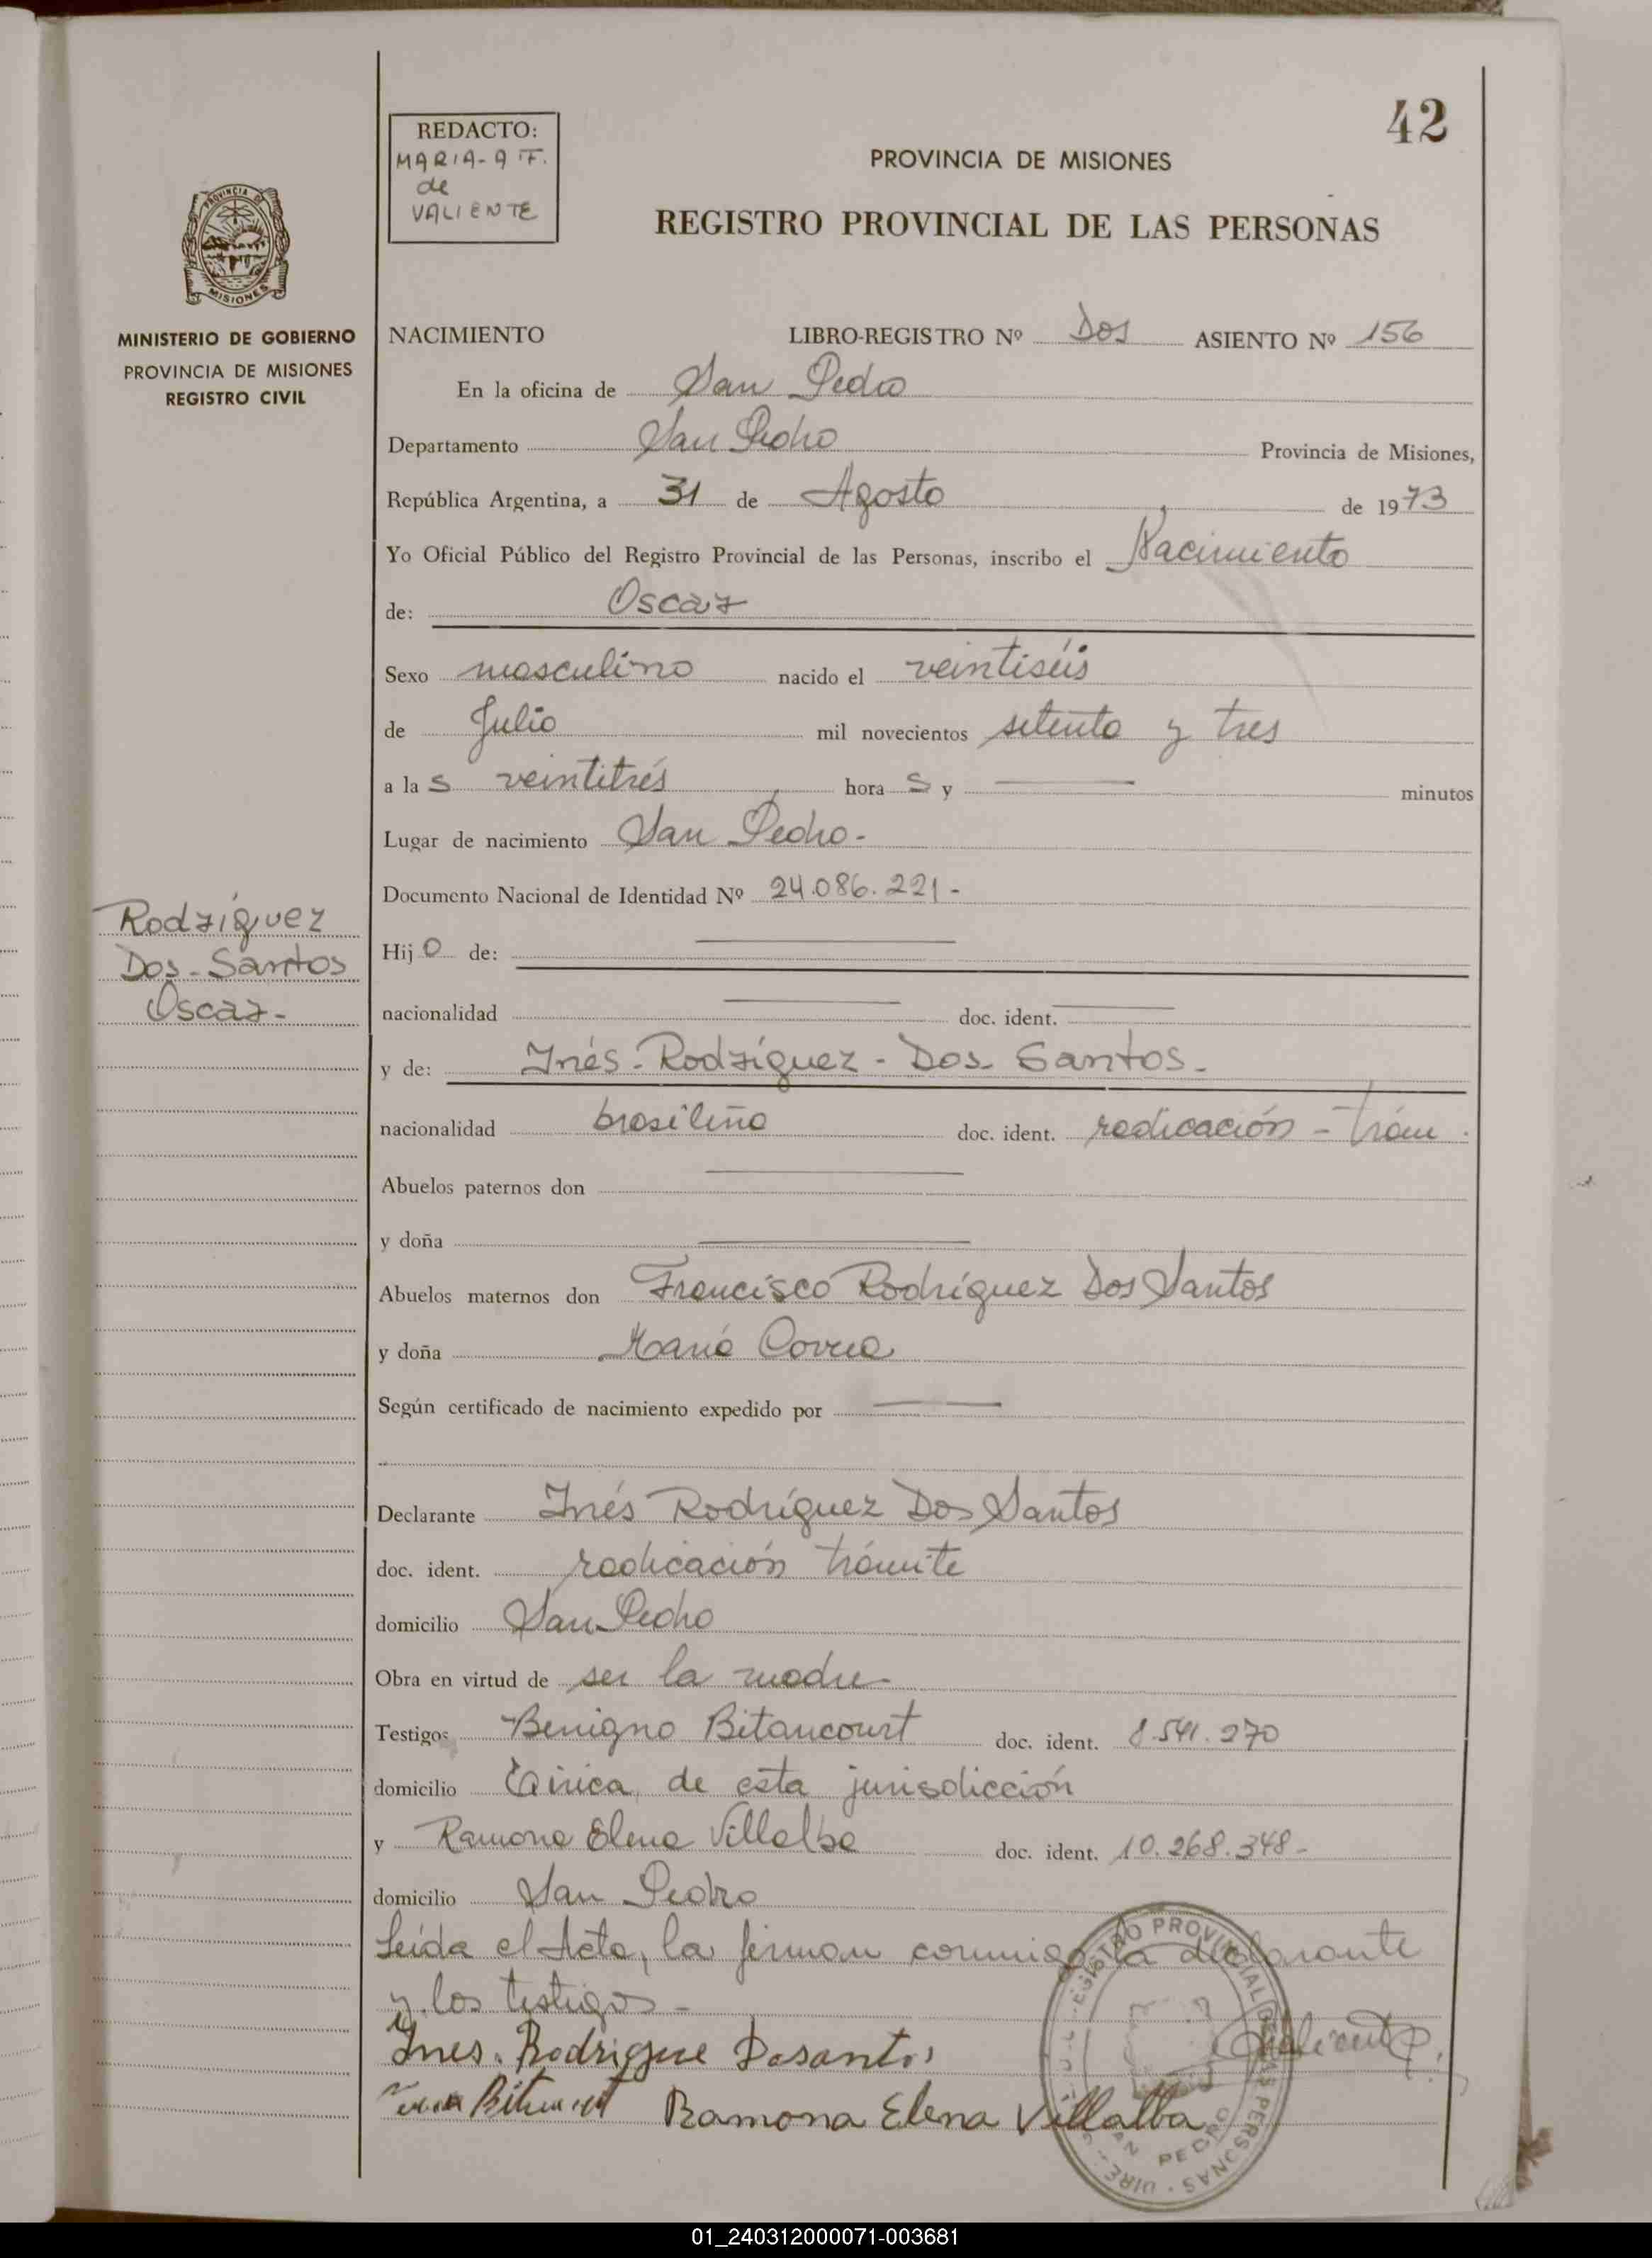 42
REDACTO:
MARIA-A F.
de
VALIENTE
PROVINCIA DE MISIONES
REGISTRO PROVINCIAL DE LAS PERSONAS
PROVINCIA DE
MISIONES
MINISTERIO DE GOBIERNO
PROVINCIA DE MISIONES
REGISTRO CIVIL
NACIMIENTO LIBRO-REGISTRO Nº Dos ASIENTO Nº 156
En la oficina de San Pedro
Departamento San Pedro Provincia de Misiones,
República Argentina, a 31 de Agosto de 1973
Yo Oficial Público del Registro Provincial de las Personas, inscribo el Nacimiento
de: Oscar
Sexo masculino nacido el veintiséis
de Julio mil novecientos setenta y tres
a las veintitrés horas y minutos
Lugar de nacimiento San Pedro-
Documento Nacional de Identidad Nº 24.086.221-
Rodríguez
Dos-Santos
Oscar-
Hijo de:
nacionalidad doc. ident.
y de: Inés-Rodríguez-Dos-Santos-
nacionalidad brasileña doc. ident. radicación - trám.
Abuelos paternos don
y doña
Abuelos maternos don Francisco Rodríguez Dos Santos
y doña María Correa
Según certificado de nacimiento expedido por
Declarante Inés Rodríguez Dos Santos
doc. ident. radicación trámite
domicilio San Pedro
Obra en virtud de ser la madre-
Testigos Benigno Bitancourt doc. ident. 8.541.270
domicilio de esta jurisdicción
y Ramona Elena Villalba doc. ident. 10.268.348-
domicilio San Pedro
Leída el Acta, la firman conmigo la declarante
y los testigos-
Ines. Rodrigue Dosantos
Valiente
Ramona Elena Villalba
REGISTRO PROVINCIAL DE LAS PERSONAS
SAN PEDRO
01_240312000071-003681